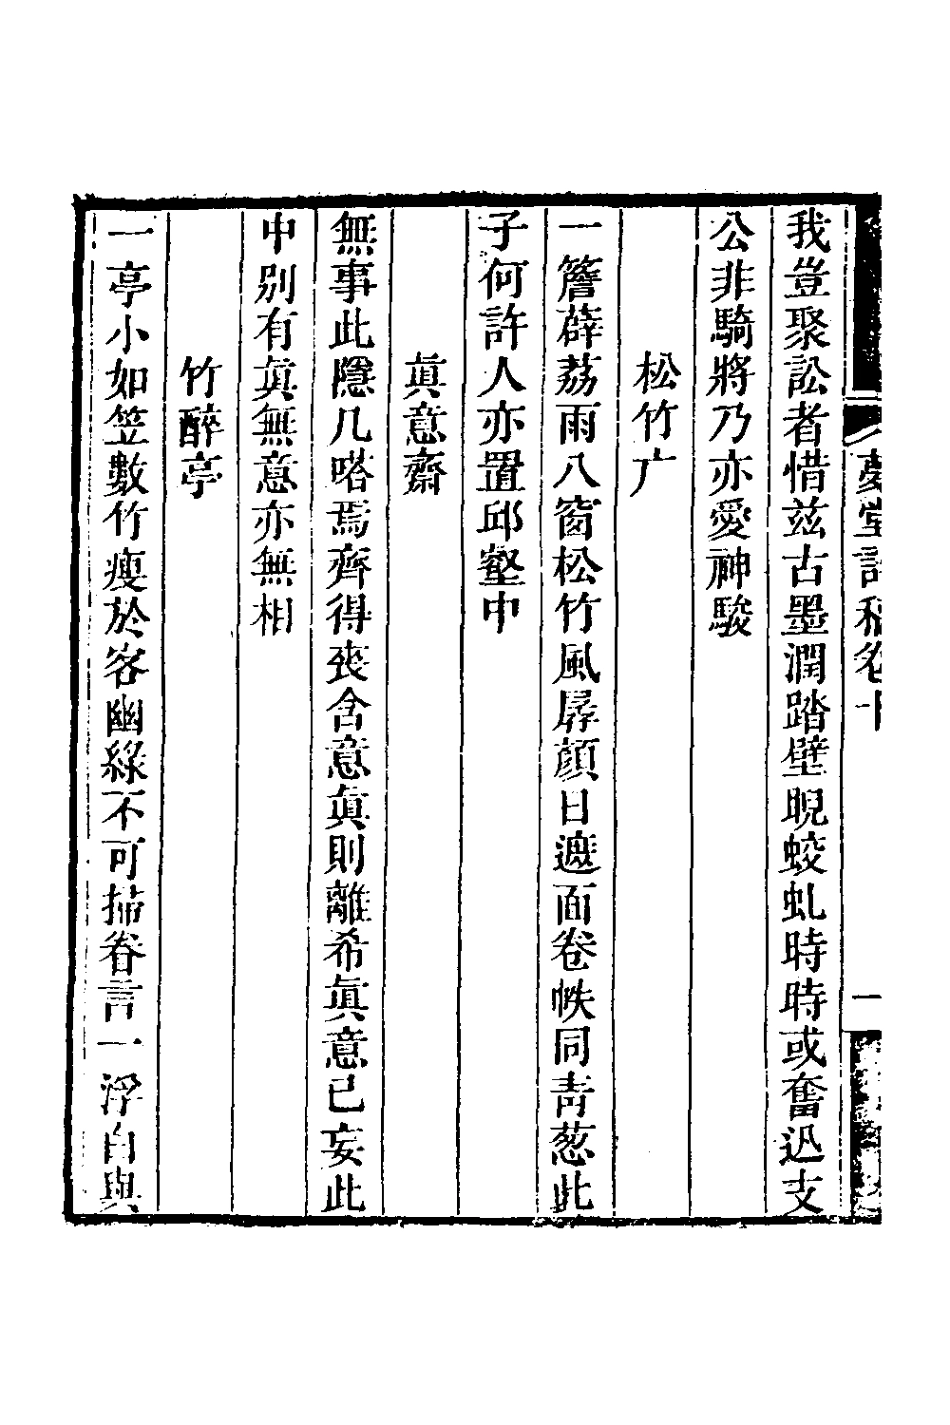 夢堂詩稿卷十
一
我豈聚訟者惜兹古墨潤踏壁睨蛟虬時時或奮迅支
公非騎將乃亦愛神駿
松竹广
一簷薜荔雨八窗松竹風孱顔日遮面卷帙同青葱此
子何許人亦置邱壑中
眞意齋
無事此隱几嗒焉齊得喪含意眞則離希眞意已妄此
中别有眞無意亦無相
竹醉亭
一亭小如笠數竹瘦於客幽綠不可掃眷言一浮白與